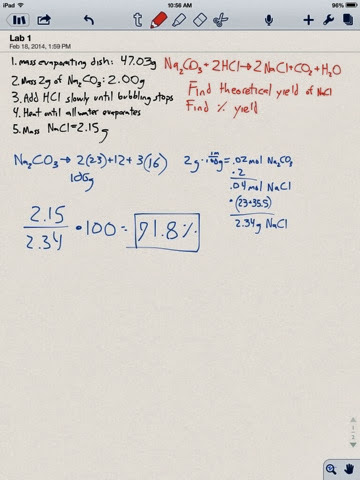 iPad
10:56 AM
96%
Lab 1
Feb 18, 2014, 1:59 PM
1. mass evaporating dish: 47.03g
2. Mass 2g of Na₂CO₃: 2.00g
3. Add HCl slowly until bubbling stops
4. Heat until all water evaporates
5. Mass NaCl = 2.15g
Na₂CO₃ + 2HCl → 2NaCl + CO₂ + H₂O
Find theoretical yield of NaCl
Find % yield
Na₂CO₃ → 2(23)+12+3(16)
106g
= .02mol Na₂CO₃
•2
.04 mol NaCl
•(23+35.5)
2.34g NaCl
2.15
2.34
•100 =
91.8%